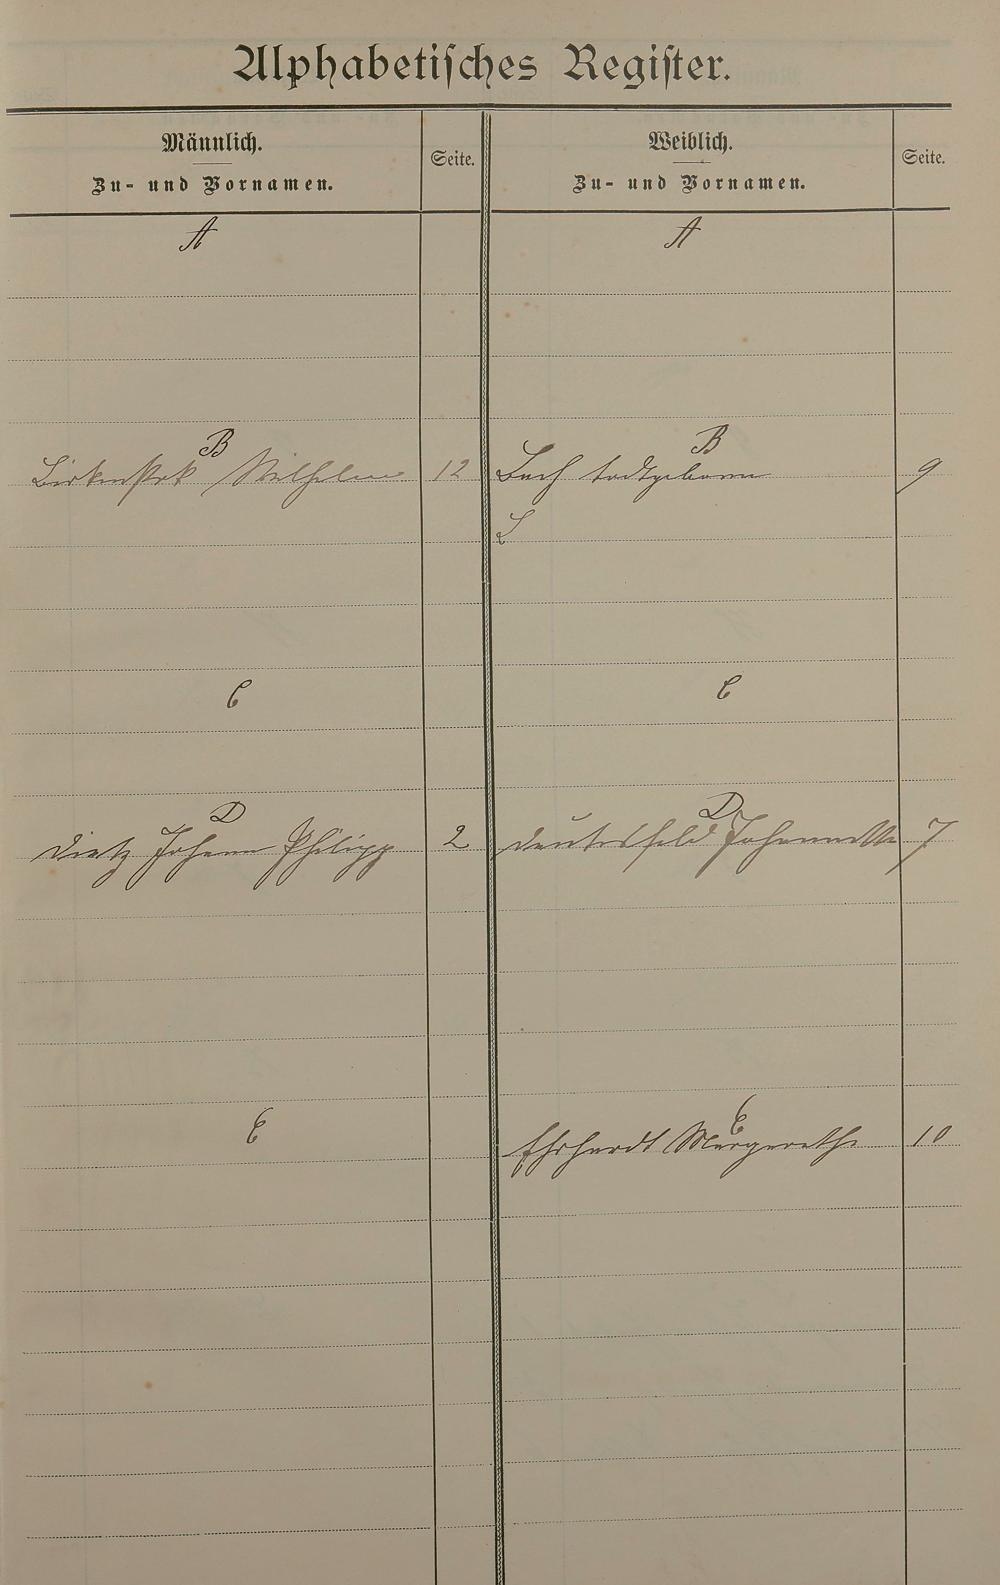 Alphabetisches Register.
Männlich.
Zu- und Vornamen.
Seite.
Weiblich.
Zu- und Vornamen.
Seite.
A
A
B
B
Birkenstock Wilhelm 12
Bach todtgeboren 9
C
C
D
D
Dietz Johann Philipp 2
Deutesfeld Johannette 7
E
E
Ehrhardt Margarethe 10